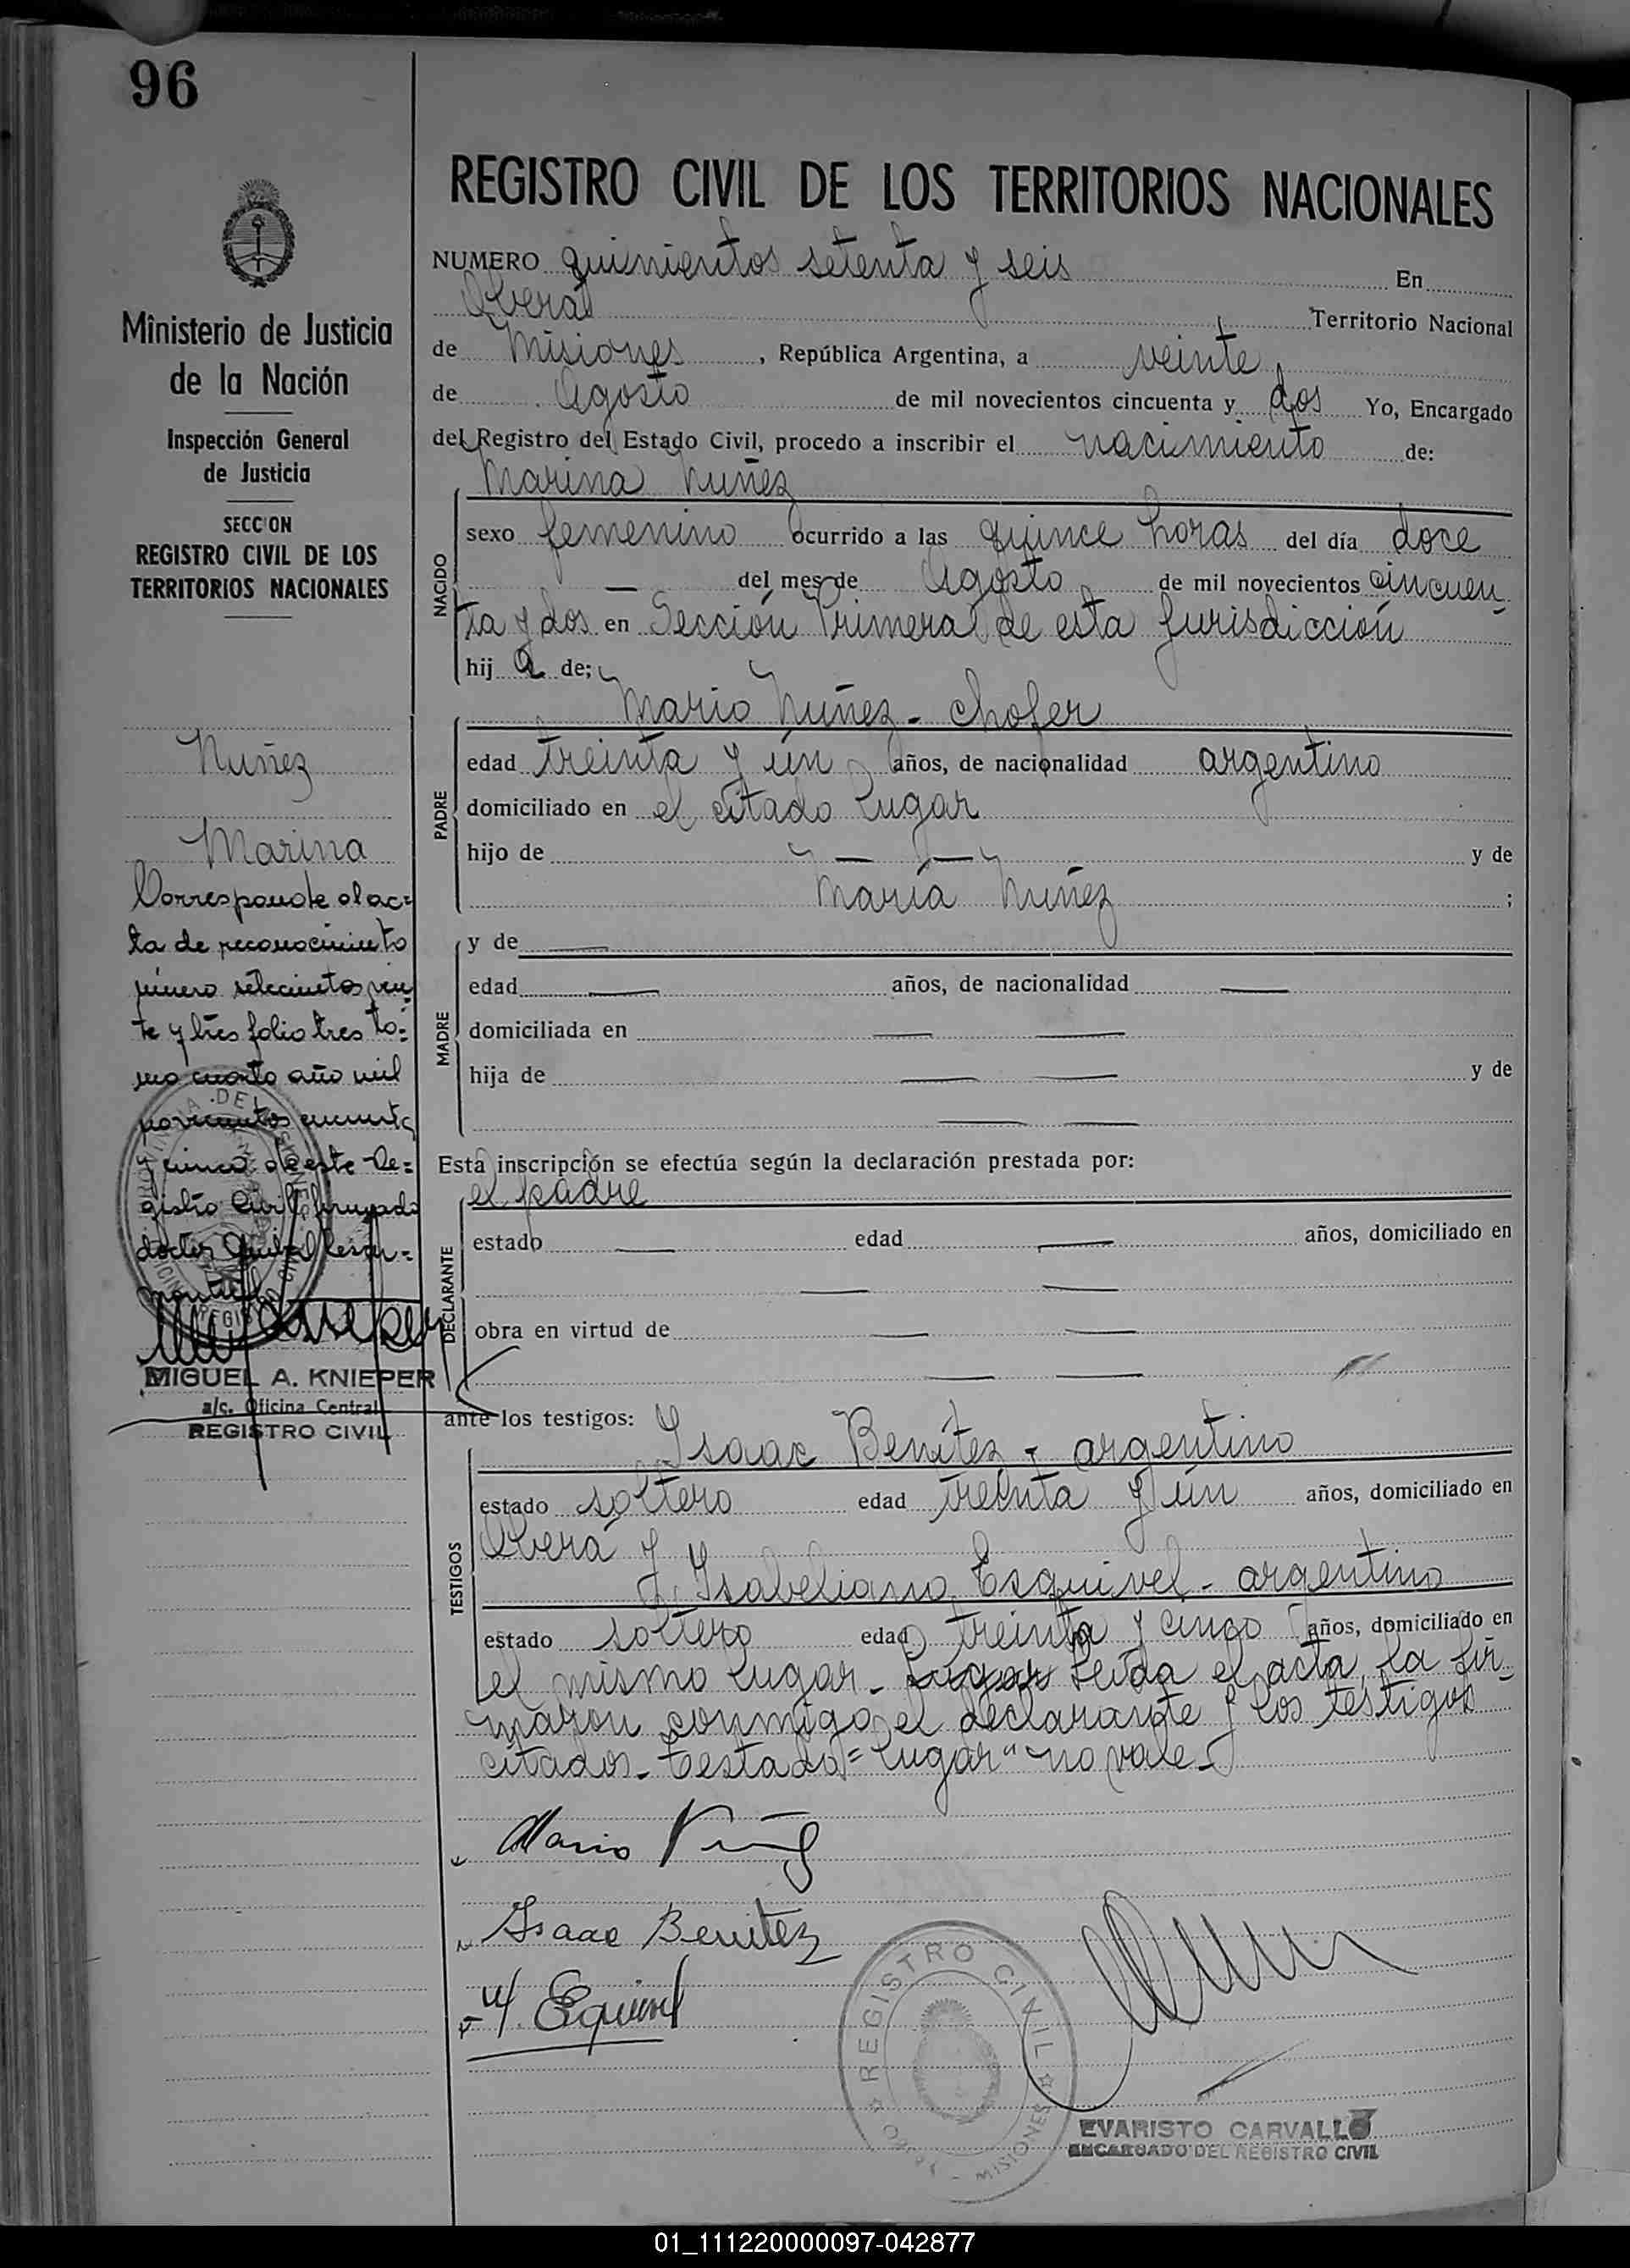 96
REGISTRO CIVIL DE LOS TERRITORIOS NACIONALES
Ministerio de Justicia
de la Nación
Inspección General
de Justicia
SECCION
REGISTRO CIVIL DE LOS
TERRITORIOS NACIONALES
NUMERO quinientos setenta y seis En
Oberá Territorio Nacional
de Misiones, República Argentina, a veinte
de Agosto de mil novecientos cincuenta y dos Yo, Encargado
del Registro del Estado Civil, procedo a inscribir el nacimiento de:
Marina Nuñez
NACIDO
sexo femenino ocurrido a las quince horas del día doce
— del mes de Agosto de mil novecientos cincuen-
ta y dos en Sección Primera de esta Jurisdicción
hij a de;
Mario Nuñez - chofer
PADRE
edad treinta y ún años, de nacionalidad argentino
domiciliado en el citado lugar
hijo de — — y de
María Nuñez ;
MADRE
y de —
edad — años, de nacionalidad —
domiciliada en — —
hija de — — y de
— —
Esta inscripción se efectúa según la declaración prestada por:
el padre
DECLARANTE
estado — edad — años, domiciliado en
— —
obra en virtud de — —
— —
ante los testigos:
Isaac Benítez - argentino
TESTIGOS
estado soltero edad treinta y ún años, domiciliado en
Oberá y
Ysabeliano Esquivel - argentino
estado soltero edad treinta y cinco años, domiciliado en
el mismo lugar - lugar Leída el acta, la fir-
maron conmigo el declarante y los testigos
citados - Testado = lugar" no vale -
Mario Nuñez
Isaac Benitez
Y. Equivel
REGISTRO CIVIL
MISIONES
EVARISTO CARVALLO
ENCARGADO DEL REGISTRO CIVIL
Nuñez
Marina
Corresponde al ac=
ta de reconocimiento
número setecientos vein
te y tres folio tres to=
mo cuarto año mil
novecientos cincuenta
y cinco de este Re=
gistro Civil firmado
doctor
MIGUEL A. KNIEPER
a/c. Oficina Central
REGISTRO CIVIL
01_111220000097-042877